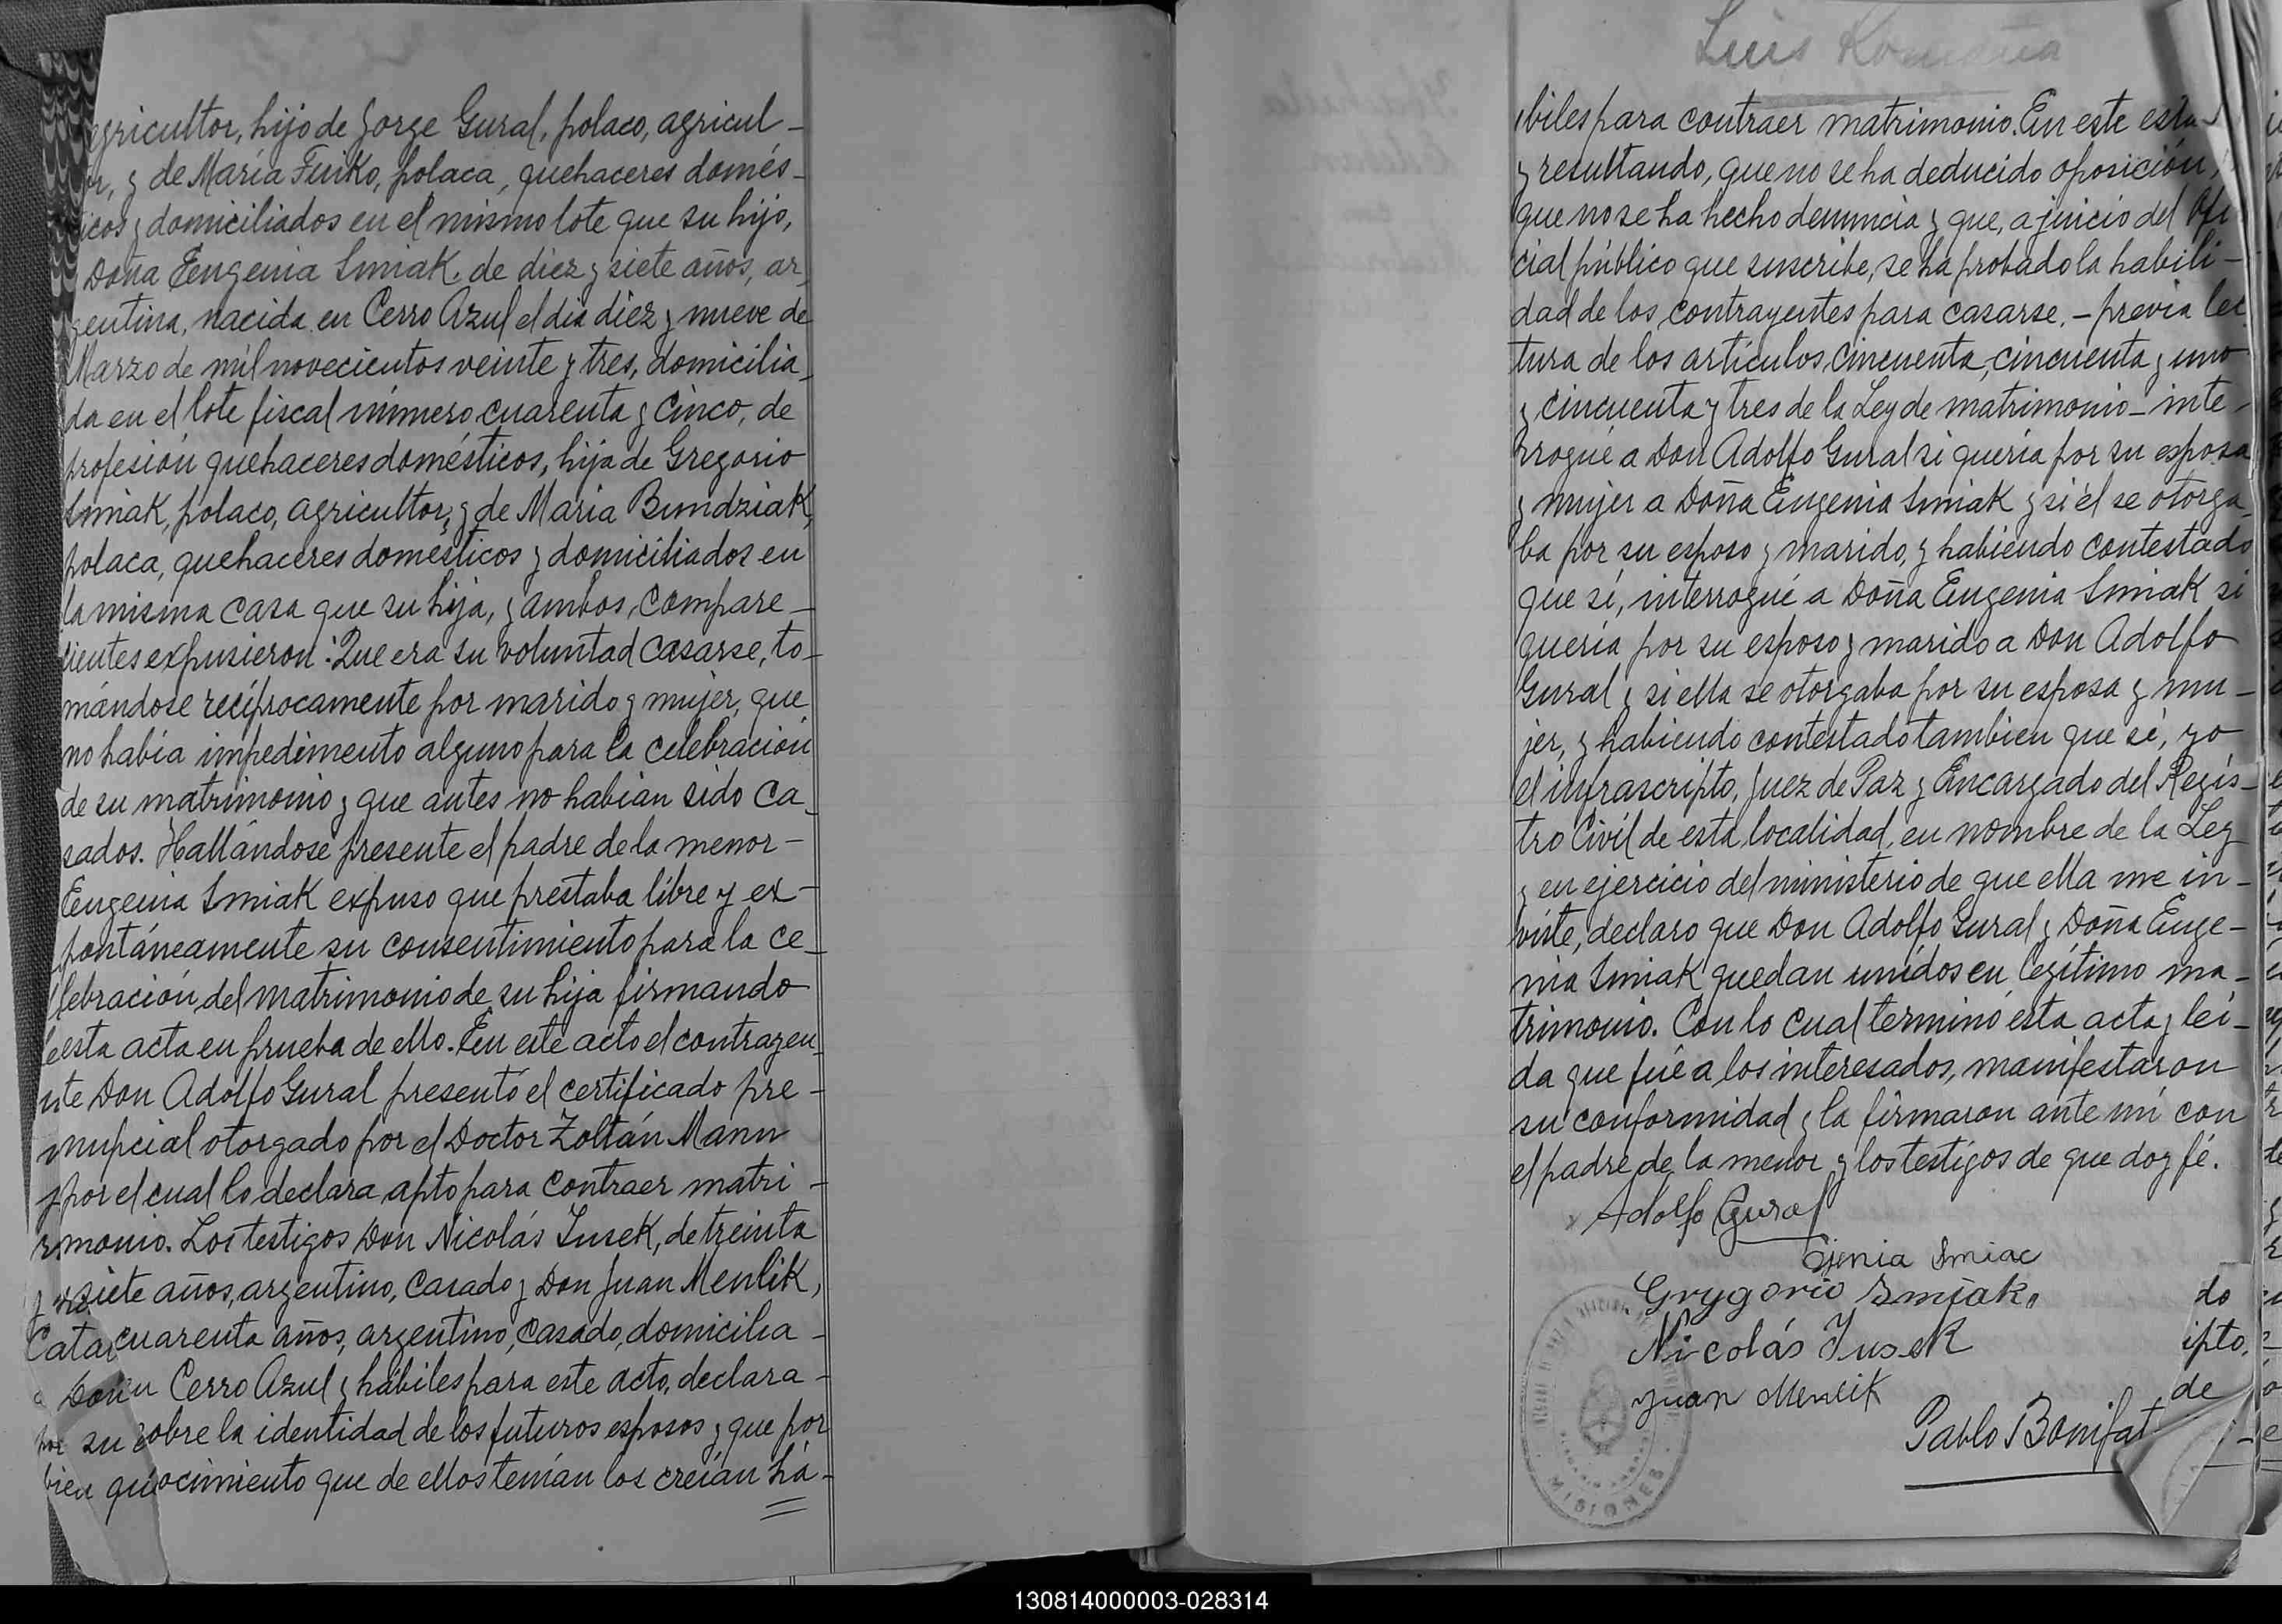 agricultor, hijo de Jorge Gural, polaco, agricul-
or, y de María Fuiko, polaca, quehaceres domés-
icos y domiciliados en el mismo lote que su hijo,
Doña Eugenia Smiak, de diez y siete años, ar-
gentina, nacida en Cerro Azul el dia diez y nueve de
Marzo de mil novecientos veinte y tres, domicilia-
da en el lote fiscal número cuarenta y cinco, de
profesión quehaceres domésticos, hija de Gregorio
Smiak, polaco, agricultor, y de Maria Bundziak,
polaca, quehaceres domésticos y domiciliados en
la misma casa que su hija, y ambos, compare-
cientes expusieron: Que era su voluntad casarse, to-
mándose recíprocamente por marido y mujer, que
no había impedimento alguno para la celebración
de su matrimonio y que antes no habían sido ca-
sados. Hallándose presente el padre de la menor-
Eugenia Smiak expuso que prestaba libre y es-
pontáneamente su consentimiento para la ce-
lebración del matrimonio de su hija firmando
esta acta en prueba de ello. En este acto el contrayen-
te Don Adolfo Gural presentó el certificado pre-
nupcial otorgado por el Doctor Zoltán Mann
por el cual lo declara apto para contraer matri-
monio. Los testigos Don Nicolás Jusek, de treinta
y siete años, argentino, casado y Don Juan Menlik,
Cata cuarenta años, argentino, casado, domicilia-
Don n Cerro Azul y hábiles para este acto, declara-
por su sobre la identidad de los futuros esposos y que por
bien qu ocimiento que de ellos tenían los creían há-
Luis Romaña
biles para contraer matrimonio. En este esta-
y resultando, que no se ha deducido oposición,
que no se ha hecho denuncia y que, a juicio del Ofi
cial público que suscribe, se ha probado la habili-
dad de los contrayentes para casarse.- previa lec
tura de los artículos cincuenta, cincuenta y uno
y cincuenta y tres de la Ley de matrimonio- inte-
rrogué a Don Adolfo Gural si quería por su esposa
y mujer a Doña Eugenia Smiak y si él se otorga-
ba por su esposo y marido, y habiendo contestado
que sí, interrogué a Doña Eugenia Smiak si
quería por su esposo y marido a Don Adolfo
Gural y si ella se otorgaba por su esposa y mu-
jer, y habiendo contestado tambien que sí, yo
el infrascripto, Juez de Paz y Encargado del Regis-
tro Civil de esta localidad, en nombre de la Ley
y en ejercicio del ministerio de que ella me in-
viste, declaro que Don Adolfo Gural y Doña Euge-
nia Smiak quedan unidos en legítimo ma-
trimonio. Con lo cual terminó esta acta y leí-
da que fué a los interesados, manifestaron
su conformidad y la firmaron ante mí con
el padre de la menor y los testigos de que doy fé.
Adolfo Gural
Ejenia Smiac
Grygorio Smjak
do
Nicolás Jusek
ipto.
Juan Menlik
de
Pablo Bonifat
MISIONES
130814000003-028314